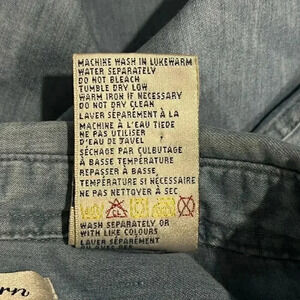 MACHINE WASH IN LUKEWARM
WATER SEPARATELY
DO NOT BLEACH
TUMBLE DRY LOW
WARM IRON IF NECESSARY
DO NOT DRY CLEAN
LAVER SÉPARÉMENT À LA
MACHINE À L'EAU TIEDE
NE PAS UTILISER
D'EAU DE JAVEL
SÉCHAGE PAR CULBUTAGE
À BASSE TEMPÉRATURE
REPASSER À BASSE
TEMPÉRATURE SI NÉCESSAIRE
NE PAS NETTOYER À SEC
WASH SEPARATELY OR
WITH LIKE COLOURS
LAVER SÉPARÉMENT
OU AVEC DES